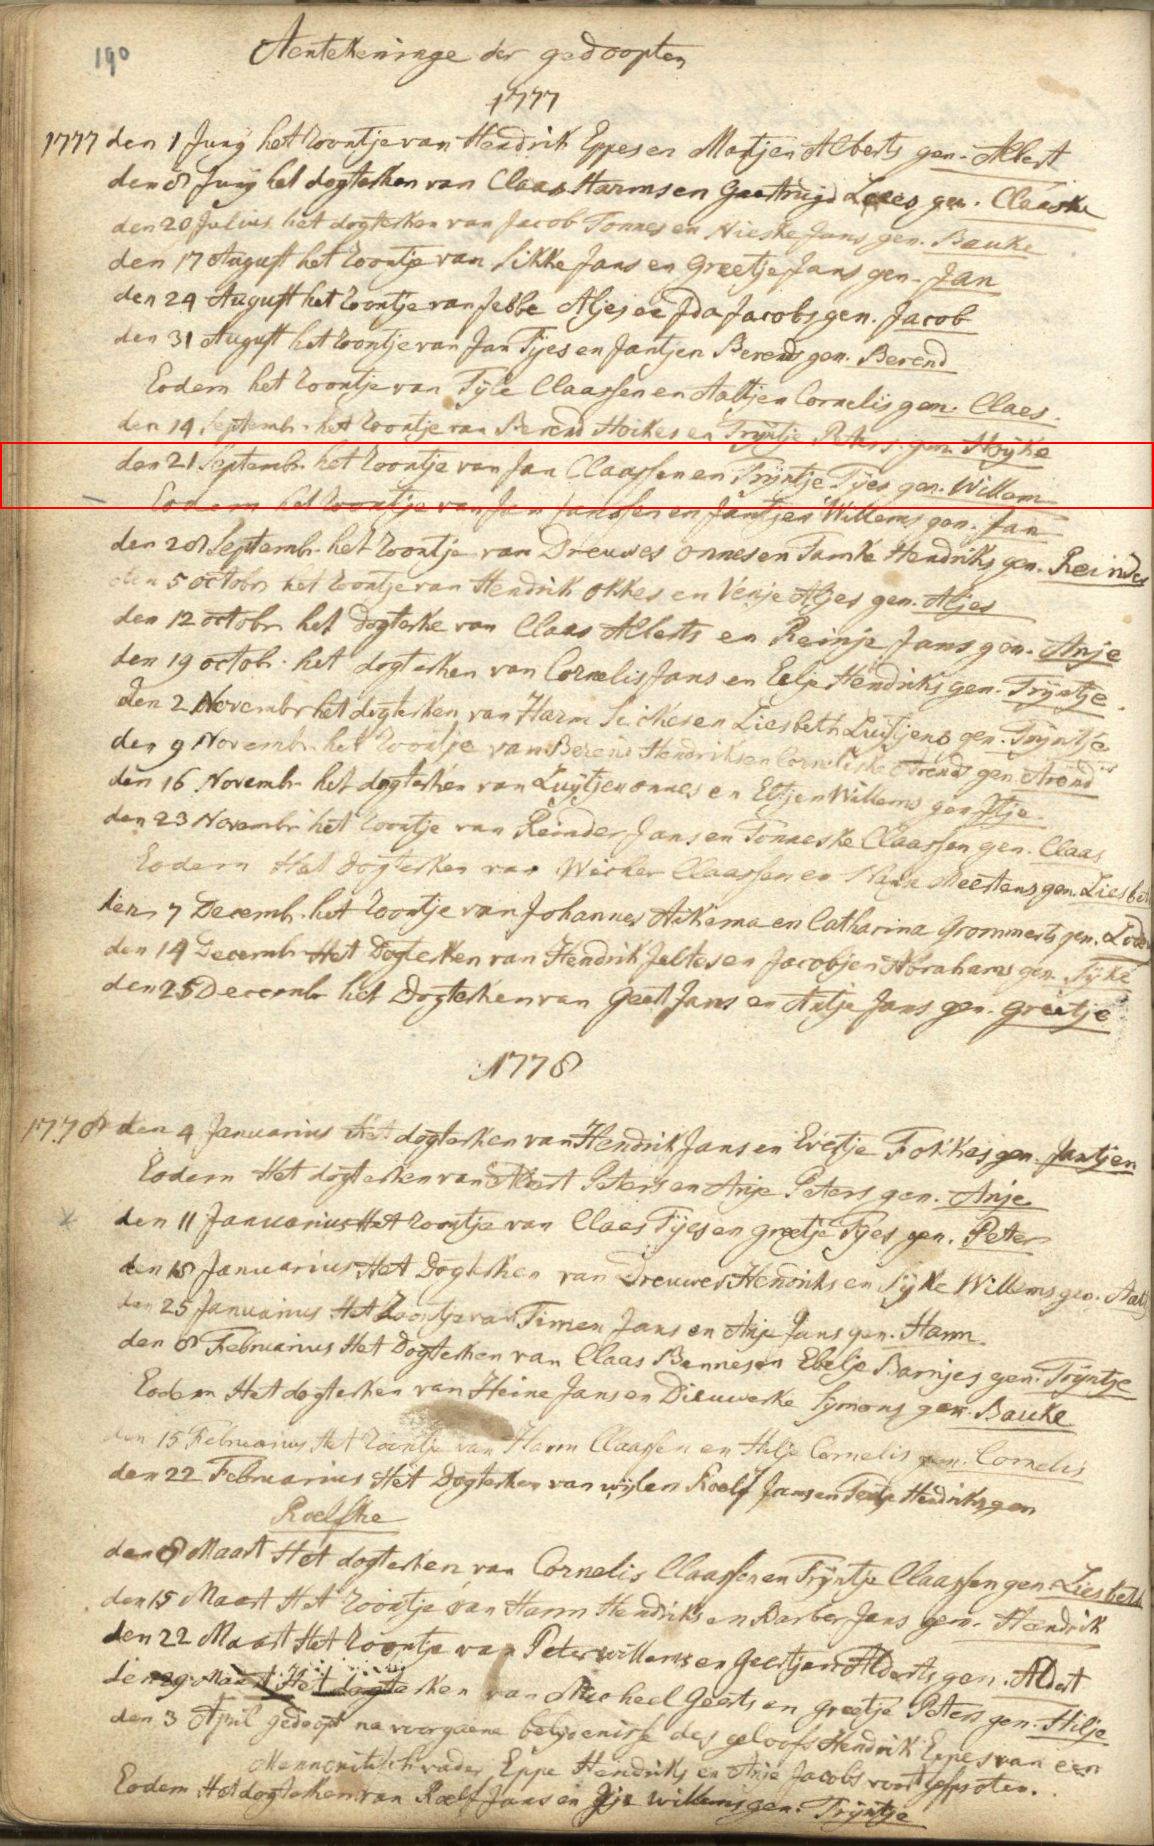 190
Aentekeninge der gedoopten
1777
1777 den 1 Junÿ het zoontje van Hendrik Eppes en Martjen Alberts gen. Albert
den 8 Junÿ het dogterken van Claas Harms en Geertruyd gen. Claaske
den 20 Julius het dogterken van Jacob Tonnes en Nieske Jans gen. Bauke
den 17 August het zoontje van Sikke Jans en Greetje Jans gen. Jan
den 24 August het zoontje van Jebbe Aljes en Ida Jacobs gen. Jacob
den 31 August het zoontje van Jan Tÿes en Jantjen Berends gen. Berend
Eodem het zoontje van Tÿle Claassen en Aaltjen Cornelis gen. Claes.
den 14 Septembr. het zoontje van Berend Hoikes en Trÿntje Peters gen. Hoÿke
den 21 Septembr. het zoontje van Jan Claassen en Trÿntje Tÿes gen. Willem
Eodem het zoontje van Jan Janssen en Jantjen Willems gen. Jan
den 28 Septembr. het zoontje van Dreuwes Onnes en Tamke Hendriks gen. Reinder
den 5 octobr het zoontje van Hendrik Okkes en Venje Aljes gen. Aljes
den 12 octobr het dogterke van Claas Alberts en Reinje Jans gen. Anje
den 19 octobr. het dogterken van Cornelis Jans en Eelje Hendriks gen. Trÿntje.
den 2 Novembr het dogterken van Harm Sickes en Liesbeth Luitjens gen. Trÿntje
den 9 Novembr. het zoontje van Berend Hendriks en Corneliske Arends gen. Arend
den 16 Novembr. het dogterken van Luÿtjen onnes en Eltjen Willems gen Itje.
den 23 Novembr het zoontje van Reinder Jans en Tonneske Claassen gen. Claas
Eodem Het dogterken van Wicher Claassen en Meertens gen. Liesbeth
den 7 Decemb. het zoontje van Johannes Aikema en Catharina Grommerts gen.
den 14 Decembr Het Dogterken van Hendrik Jeltes en Jacobjen Abrahams gen. Tÿke
den 25 Decembr het Dogterken van Geert Jans en Antje Jans gen. greetje
1778
1778 den 4 Januarius Het dogterken van Hendrik Jans en Evertje Fokkes gen. Jantjen
Eodem Het dogterken van Albert Peters en Anje Peters gen. Anje
den 11 Januarius Het zoontje van Claes Tÿes en greetje Tÿes gen. Peter
den 18 Januarius Het Dogterken van Dreuwes Hendriks en Sÿke Willems gen.
den 25 Januarius Het zoontje van Timen Jans en Anje Jans gen. Harm
den 8 Februarius Het Dogterken van Claas Bennes en Ebelje Barnjes gen. Trÿntje
Eodem Het dogterken van Heine Jans en Dieuwerke Sÿmons gen. Bauke
den 15 Februarius Het zoontje van Harm Claassen en Hilje Cornelis gen. Cornelis
den 22 Februarius Het Dogterken van wÿlen Roelf Jans en Hendriks gen
Roelfke
den 8 Maart Het dogterken van Cornelis Claassen en Trÿntje Claassen gen. Liesbeth
den 15 Maart Het zoontje van Harm Hendriks en Barber Jans gen. Hendrik
den 22 Maart Het zoontje van Peter willems en Geertjen Alderts gen. Aldert
den 29 Maart Het dogterken van Micheel Geerts en greetje Peters gen. Hilje
den 3 April gedoopt na voorgaene belÿdenisse des geloofs Hendrik Eppes van een
Mennonitisch vader Eppe Hendriks en Anje Jacobs voort gesproten.
Eodem Het dogterken van Roelf Jans en willems gen. Trÿntje